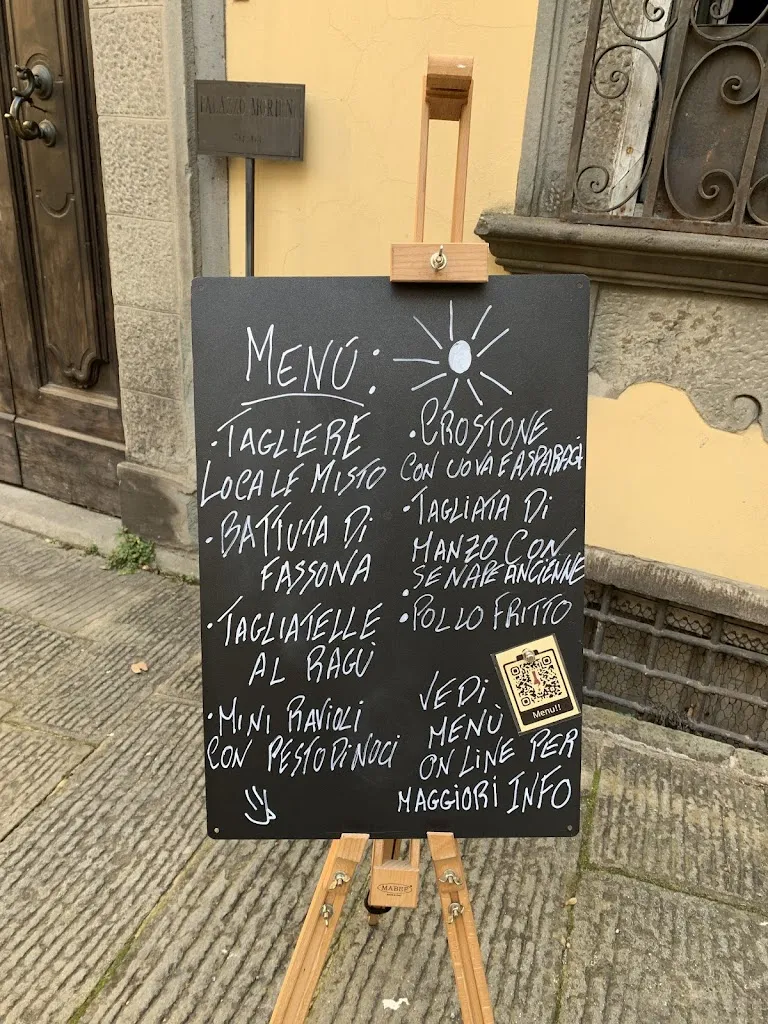 PALAZZO MORONI
MENÚ:
• TAGLIERE
LOCALE MISTO
• BATTUTA DI
FASSONA
• TAGLIATELLE
AL RAGÙ
• MINI RAVIOLI
CON PESTO DI NOCI
• CROSTONE
CON UOVA E ASPARAGI
• TAGLIATA DI
MANZO CON
SENAPE ANCIENNE
• POLLO FRITTO
VEDI
MENÙ
ON LINE PER
MAGGIORI INFO
Menu!!
MABEF